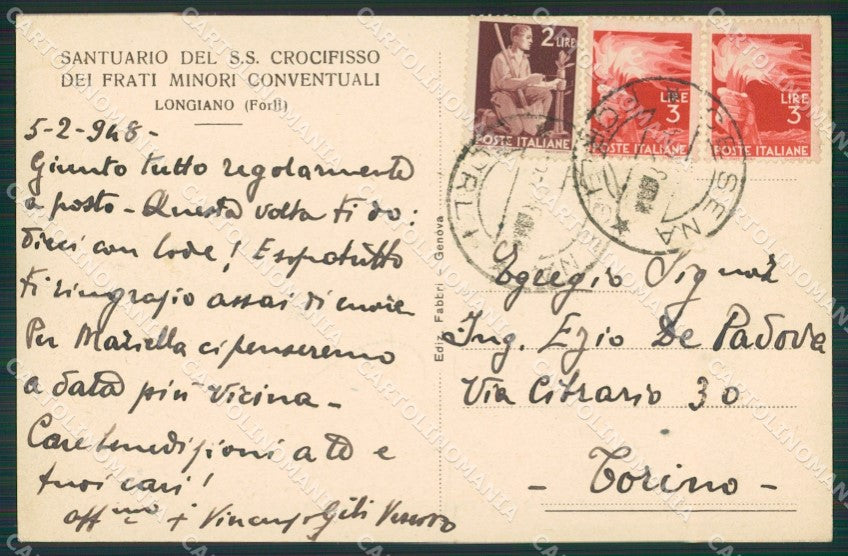 SANTUARIO DEL S.S. CROCIFISSO
DEI FRATI MINORI CONVENTUALI
LONGIANO (Forlì)
5-2-948-
Giunto tutto regolarmente
a posto - Questa volta ti do:
Dieci con lode! E sopratutto
ti ringrazio assai di cuore
Per Mariella ci penseremo
a data più vicina -
Care benedizioni a te e
tuoi cari!
aff mo + Vincenzo Gili Vescovo
Ediz. Fabbri - Genova
2 LIRE
POSTE ITALIANE
LIRE
3
POSTE ITALIANE
LIRE
3
POSTE ITALIANE
CESENA
FORLI
Egregio Signor
Ing. Ezio De Padova
Via Cibrario 30
- Torino -
CARTOLINOMANIA